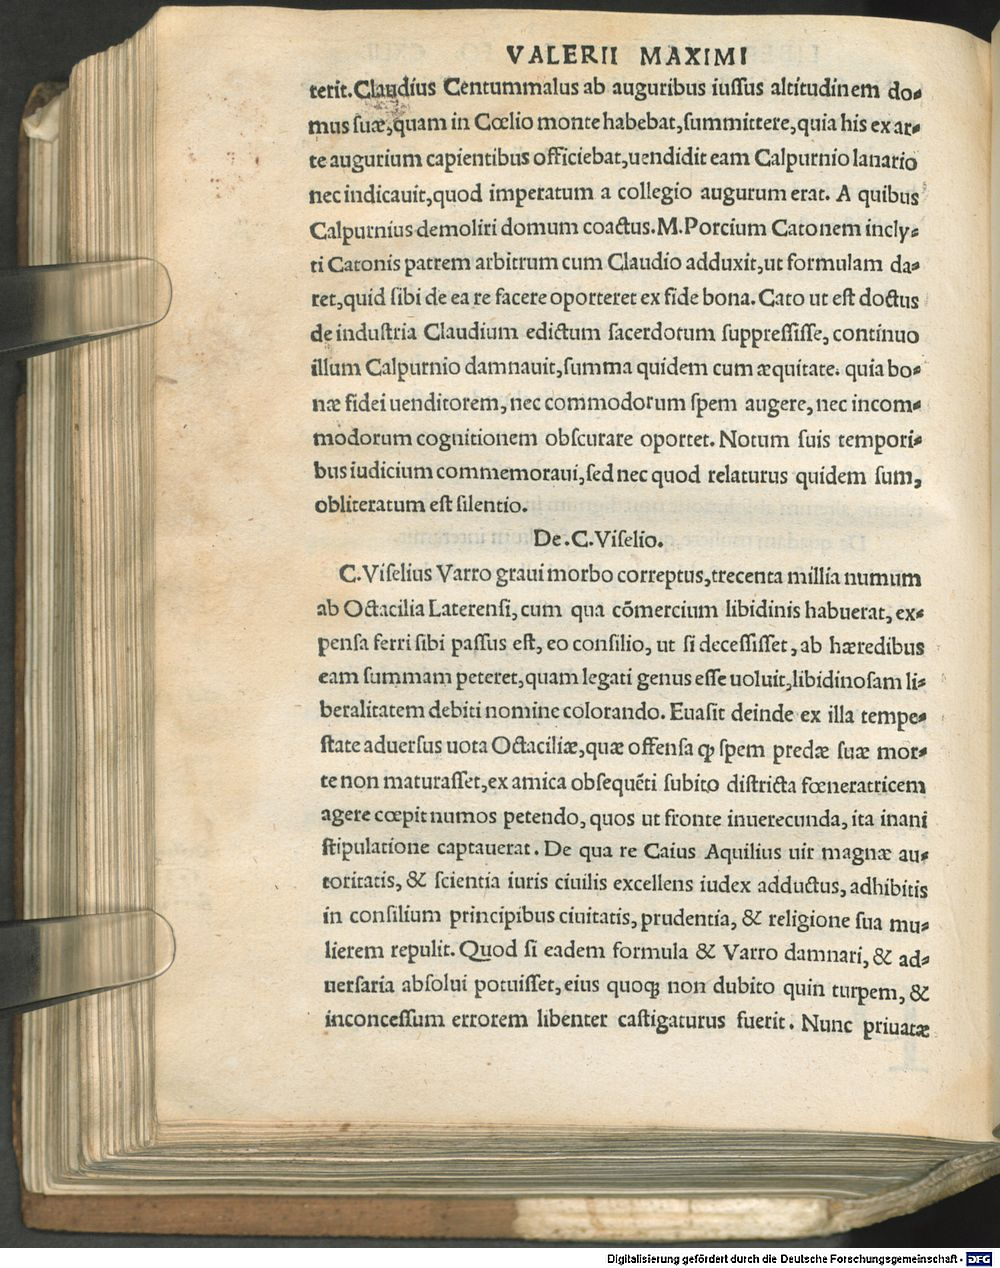 VALERII MAXIMI
terit. Claudius Centummalus ab auguribus iussus altitudinem do-
mus suæ, quam in Cœlio monte habebat, summittere, quia his ex ar-
te augurium capientibus officiebat, uendidit eam Calpurnio lanario
nec indicauit, quod imperatum a collegio augurum erat. A quibus
Calpurnius demoliri domum coactus. M. Porcium Catonem incly-
ti Catonis patrem arbitrum cum Claudio adduxit, ut formulam da-
ret, quid sibi de ea re facere oporteret ex fide bona. Cato ut est doctus
de industria Claudium edictum sacerdotum suppressisse, continuo
illum Calpurnio damnauit, summa quidem cum æquitate. quia bo-
næ fidei uenditorem, nec commodorum spem augere, nec incom-
modorum cognitionem obscurare oportet. Notum suis tempori-
bus iudicium commemoraui, sed nec quod relaturus quidem sum,
obliteratum est silentio.
De. C. Viselio.
C. Viselius Varro graui morbo correptus, trecenta millia numum
ab Octacilia Laterensi, cum qua cōmercium libidinis habuerat, ex-
pensa ferri sibi passus est, eo consilio, ut si decessisset, ab hæredibus
eam summam peteret, quam legati genus esse uoluit, libidinosam li-
beralitatem debiti nomine colorando. Euasit deinde ex illa tempe-
state aduersus uota Octaciliæ, quæ offensa ꝙ spem predæ suæ mor-
te non maturasset, ex amica obsequēti subito districta fœneratricem
agere cœpit numos petendo, quos ut fronte inuerecunda, ita inani
stipulatione captauerat. De qua re Caius Aquilius uir magnæ au-
toritatis, & scientia iuris ciuilis excellens iudex adductus, adhibitis
in consilium principibus ciuitatis, prudentia, & religione sua mu-
lierem repulit. Quod si eadem formula & Varro damnari, & ad-
uersaria absolui potuisset, eius quoqꝫ non dubito quin turpem, &
inconcessum errorem libenter castigaturus fuerit. Nunc priuatæ
Digitalisierung gefördert durch die Deutsche Forschungsgemeinschaft - DFG